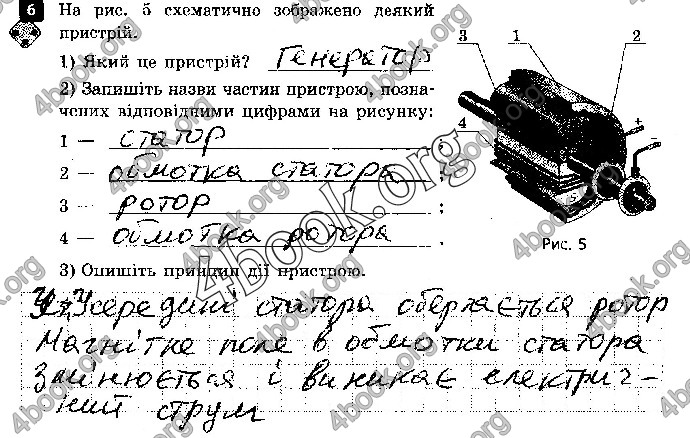 6 На рис. 5 схематично зображено деякий
пристрій.
1) Який це пристрій? Генератор
2) Запишіть назви частин пристрою, позна-
чених відповідними цифрами на рисунку:
1 — статор ;
2 — обмотка статора ;
3 — ротор ;
4 — обмотка ротора .
3 1 2
4 + –
5
Рис. 5
3) Опишіть принцип дії пристрою.
Усередині статора обертається ротор
Магнітне поле в обмотки статора
змінюється і виникає електрич-
ний струм
4book.org